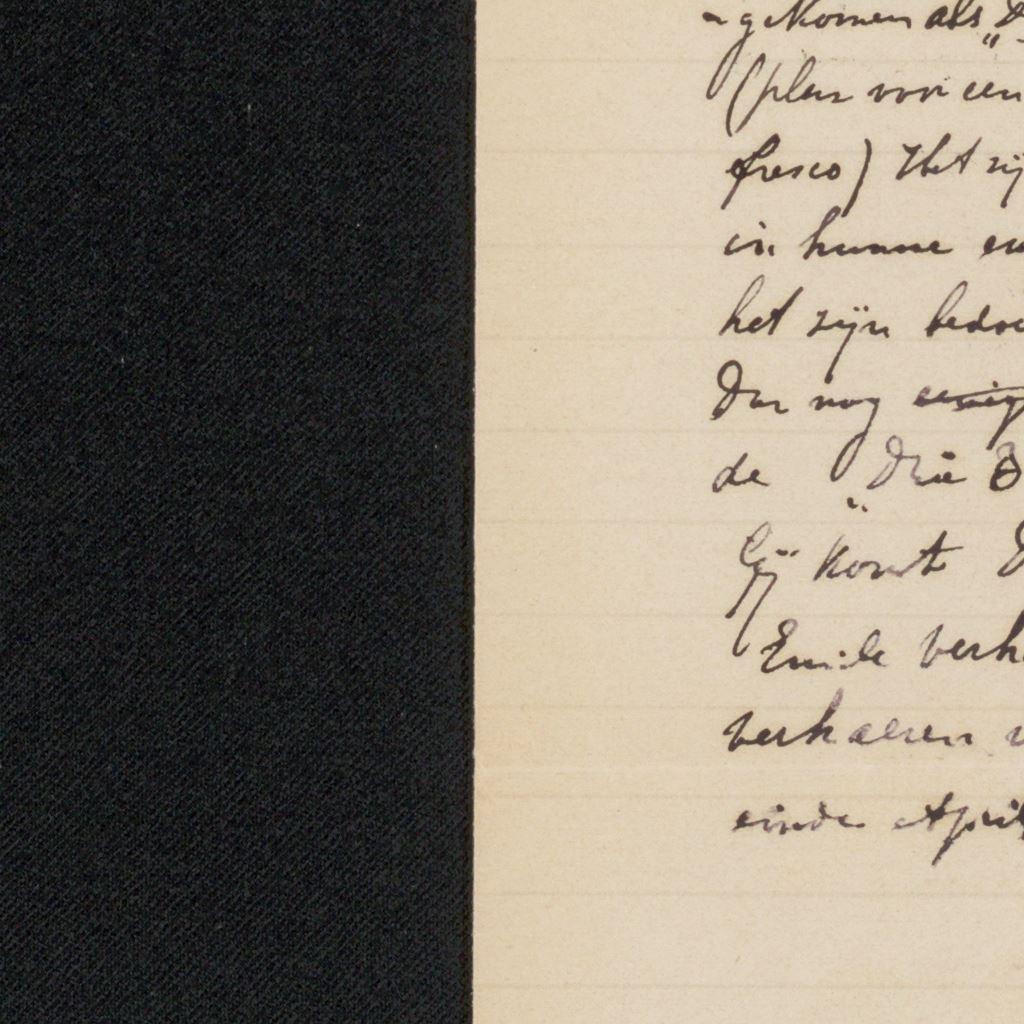 -gekomen als „D
(plan voor een
fresco) Het zij
in hunne
het zijn bedoe
Dan nog eenig
de „Drie B
Gij komt
Emile Verh
Verhaeren v
einde April